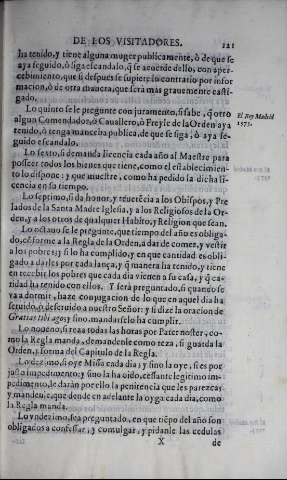 DE LOS VISITADORES.
121
ha tenido, y tiene alguna muger publicamente, ò de que se
aya seguido, ò siga escandalo, q̃ se acorde dello, con aper-
cebimiento, que si despues se supiere lo contrario por infor
macion, ò de otra manera, que serà mas grauemente casti-
gado.
Lo quinto se le pregunte con juramento, si sabe, q̃ otro
algun Comendador, ò Cauallero, ò Freyle de la Orden aya
tenido, ò tenga manceba publica, de que se siga, ò aya se-
guido escandalo.
El Rey Madrid
1573.
Lo sexto, si demanda licencia cada año al Maestre para
posseer todos los bienes que tiene, como el establecimien-
to lo dispone: y que muestre, como ha pedido la dicha li-
cencia en su tiempo.
Lo septimo, si da honor, y reuerēcia a los Obispos, y Pre
lados de la Santa Madre Iglesia, y a los Religiosos de la Or-
den, y a los otros de qualquier Habito, y Religion que sean.
Lo octauo se le pregunte, que tiempo del año es obliga-
do, cōforme a la Regla de la Orden, a dar de comer, y vestir
a los pobres; y si lo ha cumplido, y en que cantidad es obli-
gado a darles por cada lança, y q̃ manera ha tenido, y tiene
en recebir los pobres que cada dia vienen a su casa, y q̃ ca-
ridad ha tenido con ellos. Y serà preguntado, si quando se
va a dormir, haze conjugacion de lo que en aquel dia ha
seruido, ò desseruido a nuestro Señor: y si dize la oracion de
Gratias tibi ago; y sino, mandarselo ha cumplir.
Lo noueno, si reza todas las horas por Pater noster, co-
mo la Regla manda, demandenle como reza, si guarda la
Orden, y forma del Capitulo de la Regla.
Lo dezimo, si oye Missa cada dia; y sino la oye, si es por
justo impedimento; y sino la ha oido, cessante legitimo im-
pedimento, le daràn por ello la penitencia que les parezca;
y mandeñle, que dende en adelante la oyga cada dia, como
la Regla manda.
Lo vndezimo, sea preguntado, en que tiēpo del año son
obligados a confessar, y comulgar, y pidanle las cedulas
X
de